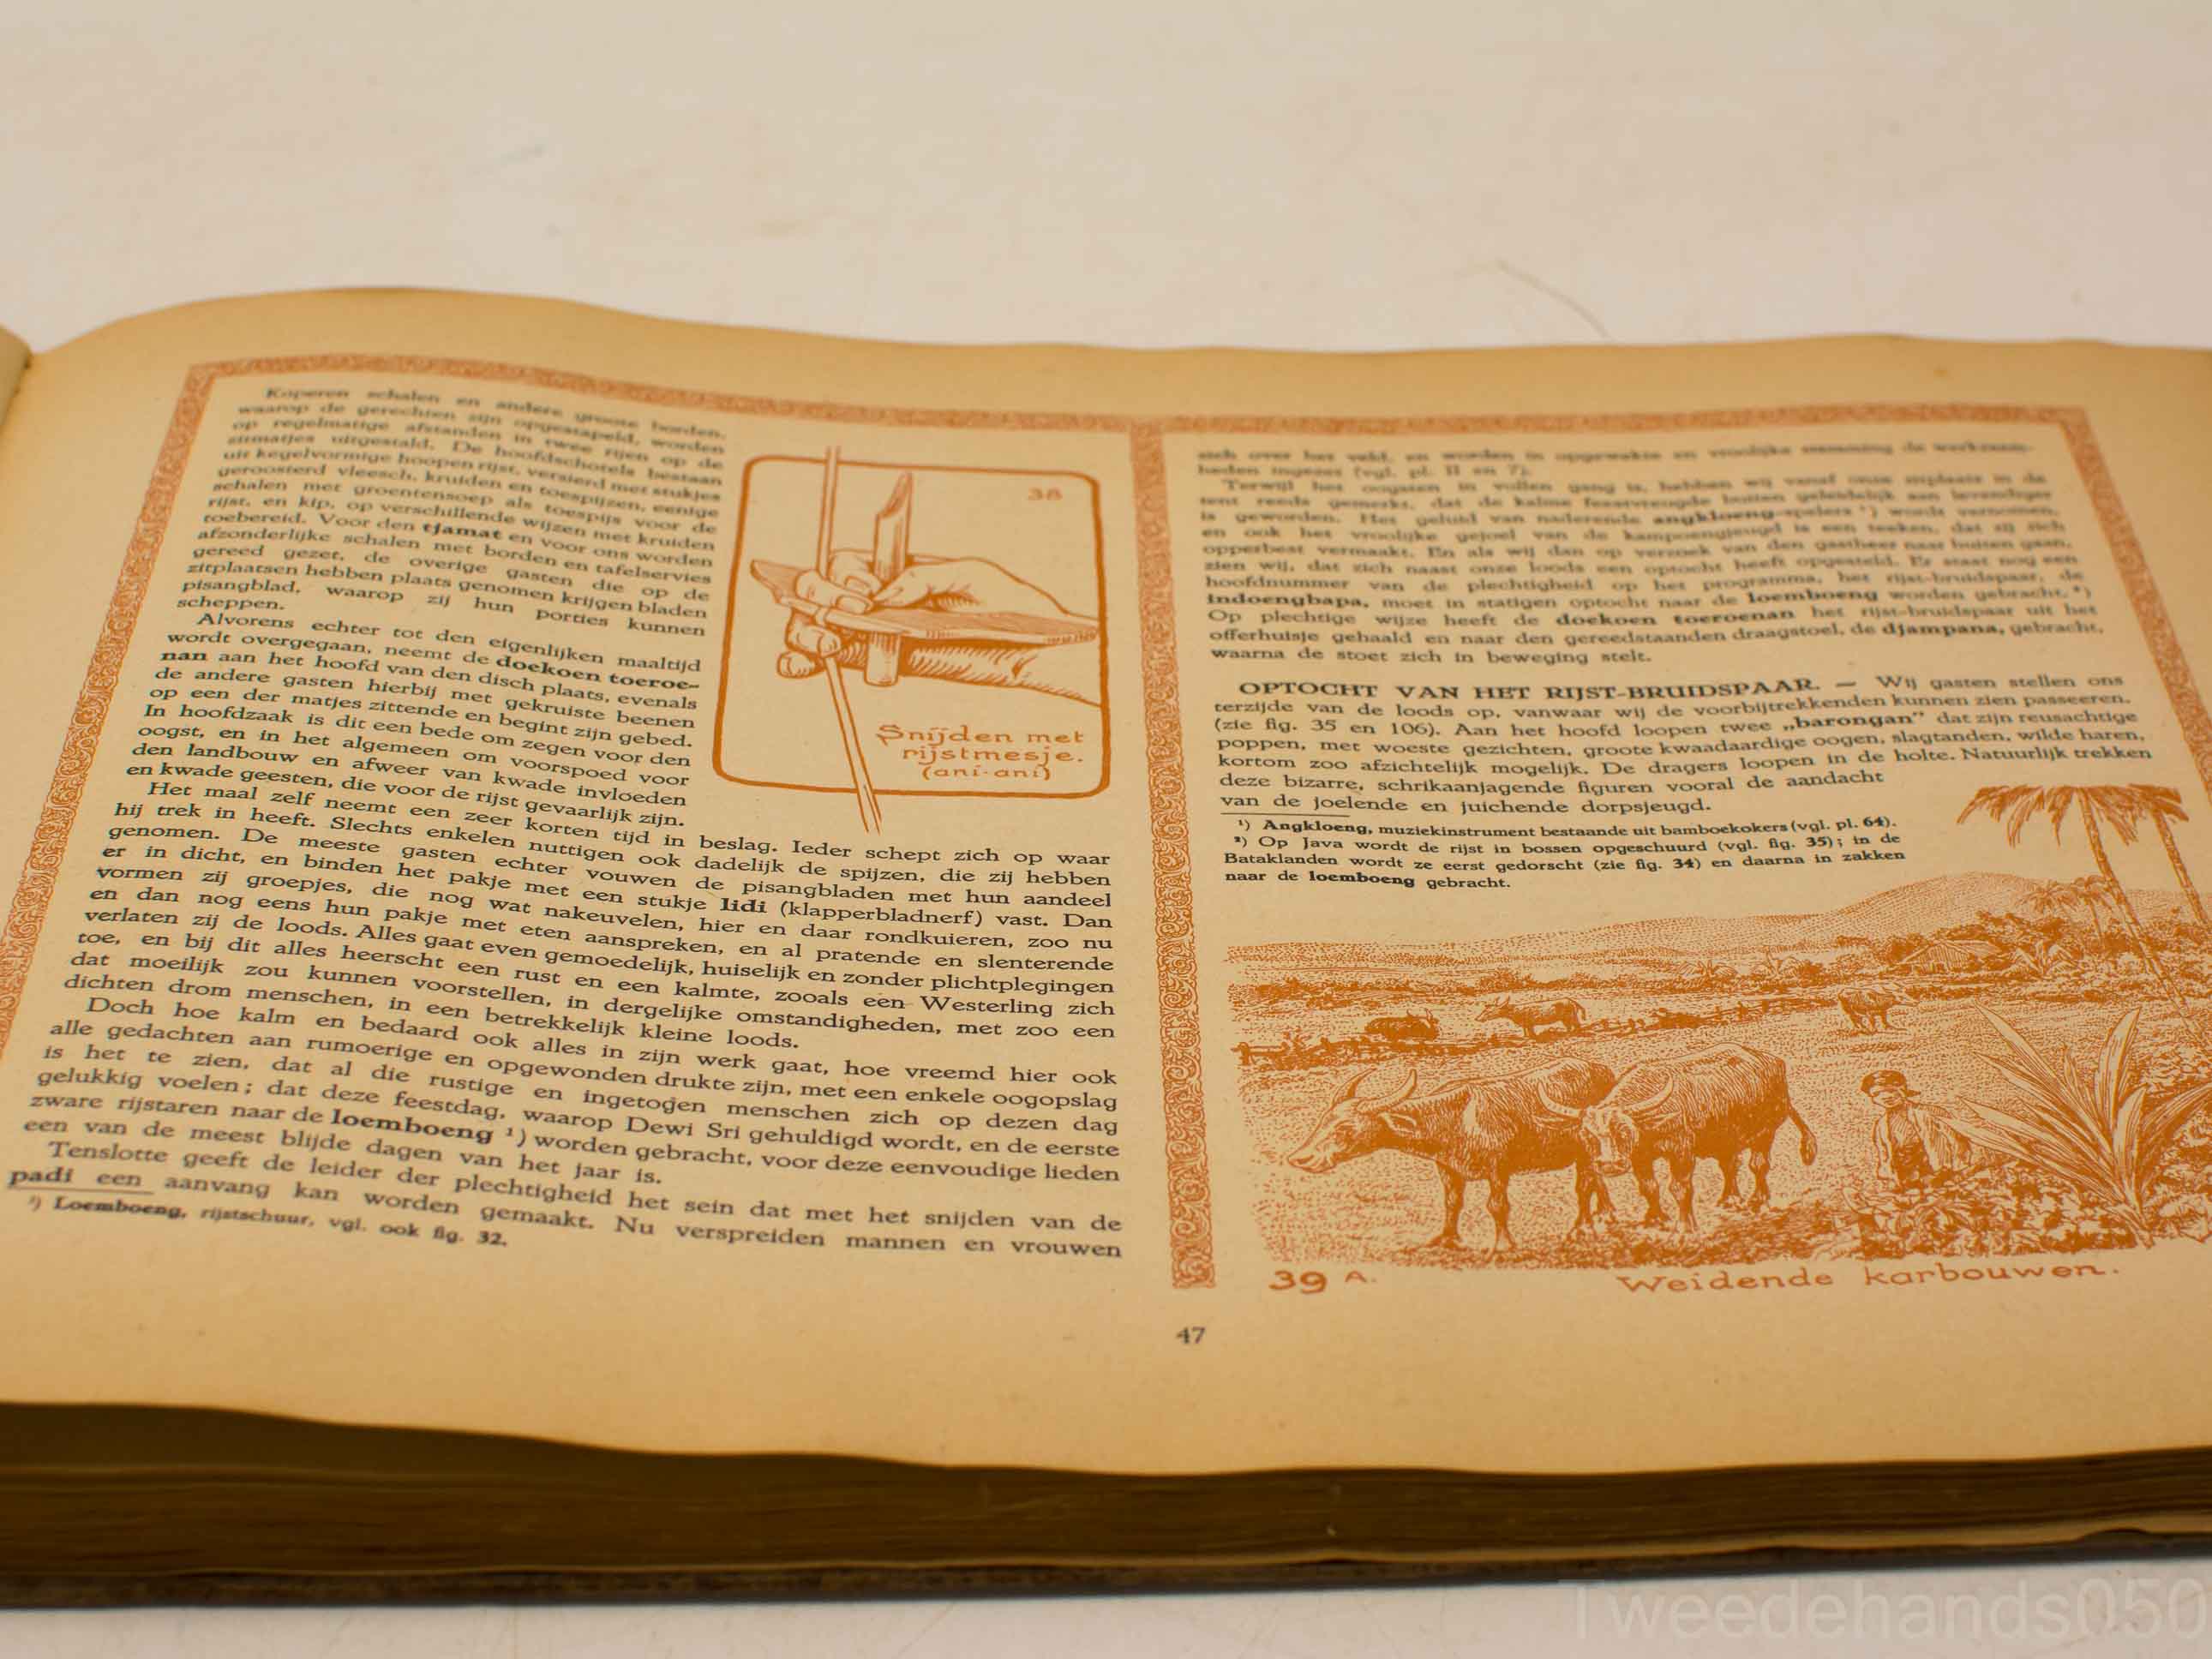 Koperen schalen en andere groote borden,
waarop de gerechten zijn opgestapeld, worden
op regelmatige afstanden in twee rijen op de
zitmatjes uitgestald. De hoofdschotels bestaan
uit kegelvormige hoopen rijst, versierd met stukjes
geroosterd vleesch, kruiden en toespijzen, eenige
schalen met groentensoep als toespijs voor de
rijst, en kip, op verschillende wijzen met kruiden
toebereid. Voor den tjamat en voor ons worden
afzonderlijke schalen met borden en tafelservies
gereed gezet, de overige gasten die op de
zitplaatsen hebben plaats genomen krijgen bladen
pisangblad, waarop zij hun porties kunnen
scheppen.
Alvorens echter tot den eigenlijken maaltijd
wordt overgegaan, neemt de doekoen toeroe-
nan aan het hoofd van den disch plaats, evenals
de andere gasten hierbij met gekruiste beenen
op een der matjes zittende en begint zijn gebed.
In hoofdzaak is dit een bede om zegen voor den
oogst, en in het algemeen om voorspoed voor
den landbouw en afweer van kwade invloeden
en kwade geesten, die voor de rijst gevaarlijk zijn.
Het maal zelf neemt een zeer korten tijd in beslag. Ieder schept zich op waar
hij trek in heeft. Slechts enkelen nuttigen ook dadelijk de spijzen, die zij hebben
genomen. De meeste gasten echter vouwen de pisangbladen met hun aandeel
er in dicht, en binden het pakje met een stukje lidi (klapperbladnerf) vast. Dan
vormen zij groepjes, die nog wat nakeuvelen, hier en daar rondkuieren, zoo nu
en dan nog eens hun pakje met eten aanspreken, en al pratende en slenterende
verlaten zij de loods. Alles gaat even gemoedelijk, huiselijk en zonder plichtplegingen
toe, en bij dit alles heerscht een rust en een kalmte, zooals een Westerling zich
dat moeilijk zou kunnen voorstellen, in dergelijke omstandigheden, met zoo een
dichten drom menschen, in een betrekkelijk kleine loods.
Doch hoe kalm en bedaard ook alles in zijn werk gaat, hoe vreemd hier ook
alle gedachten aan rumoerige en opgewonden drukte zijn, met een enkele oogopslag
is het te zien, dat al die rustige en ingetogen menschen zich op dezen dag
gelukkig voelen; dat deze feestdag, waarop Dewi Sri gehuldigd wordt, en de eerste
zware rijstaren naar de loemboeng ¹) worden gebracht, voor deze eenvoudige lieden
een van de meest blijde dagen van het jaar is.
Tenslotte geeft de leider der plechtigheid het sein dat met het snijden van de
padi een aanvang kan worden gemaakt. Nu verspreiden mannen en vrouwen
¹) Loemboeng, rijstschuur, vgl. ook fig. 32.
38
Snijden met
rijstmesje.
(ani-ani)
zich over het veld, en worden in opgewekte en vroolijke stemming de werkzaam-
heden ingezet (vgl. pl. II en 7).
Terwijl het oogsten in vollen gang is, hebben wij vanaf onze zitplaats in de
tent reeds gemerkt, dat de kalme feestvreugde buiten geleidelijk aan levendiger
is geworden. Het geluid van naderende angkloeng-spelers ¹) wordt vernomen,
en ook het vroolijke gejoel van de kampoengjeugd is een teeken, dat zij zich
opperbest vermaakt. En als wij dan op verzoek van den gastheer naar buiten gaan,
zien wij, dat zich naast onze loods een optocht heeft opgesteld. Er staat nog een
hoofdnummer van de plechtigheid op het programma, het rijst-bruidspaar, de
indoengbapa, moet in statigen optocht naar de loemboeng worden gebracht.²)
Op plechtige wijze heeft de doekoen toeroenan het rijst-bruidspaar uit het
offerhuisje gehaald en naar den gereedstaanden draagstoel, de djampana, gebracht,
waarna de stoet zich in beweging stelt.
OPTOCHT VAN HET RIJST-BRUIDSPAAR. — Wij gasten stellen ons
terzijde van de loods op, vanwaar wij de voorbijtrekkenden kunnen zien passeeren.
(zie fig. 35 en 106). Aan het hoofd loopen twee „barongan” dat zijn reusachtige
poppen, met woeste gezichten, groote kwaadaardige oogen, slagtanden, wilde haren,
kortom zoo afzichtelijk mogelijk. De dragers loopen in de holte. Natuurlijk trekken
deze bizarre, schrikaanjagende figuren vooral de aandacht
van de joelende en juichende dorpsjeugd.
¹) Angkloeng, muziekinstrument bestaande uit bamboekokers (vgl. pl. 64).
²) Op Java wordt de rijst in bossen opgeschuurd (vgl. fig. 35); in de
Bataklanden wordt ze eerst gedorscht (zie fig. 34) en daarna in zakken
naar de loemboeng gebracht.
39 A.
Weidende karbouwen.
47
Tweedehands050